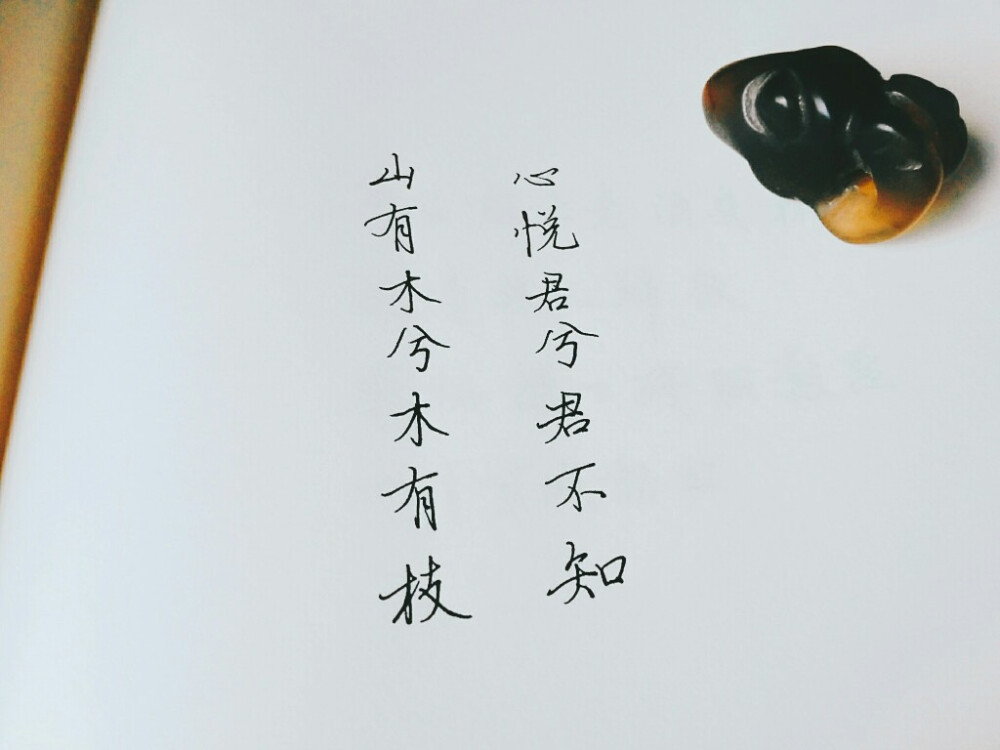 心悦君兮君不知
山有木兮木有枝